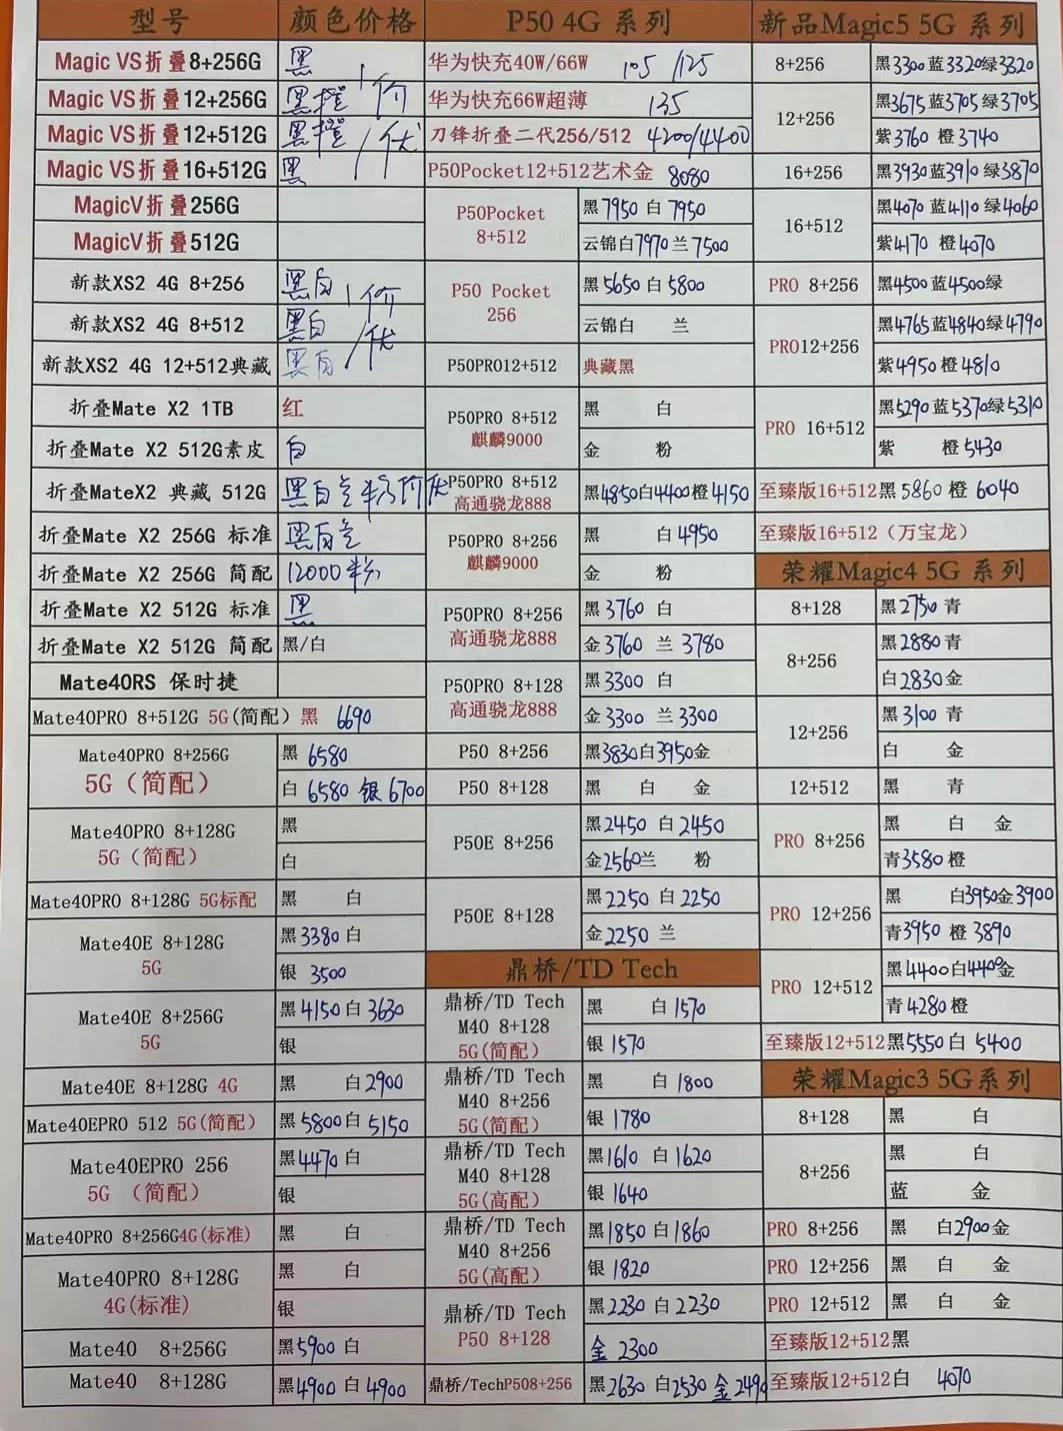 型号 颜色价格
Magic VS折叠8+256G 黑
Magic VS折叠12+256G 黑橙 1价
Magic VS折叠12+512G 黑橙 /优
Magic VS折叠16+512G 黑
MagicV折叠256G
MagicV折叠512G
新款XS2 4G 8+256 黑白 1价
新款XS2 4G 8+512 黑白 /优
新款XS2 4G 12+512典藏 黑白
折叠Mate X2 1TB 红
折叠Mate X2 512G素皮 白
折叠MateX2 典藏 512G 黑白金粉价优
折叠Mate X2 256G 标准 黑白金
折叠Mate X2 256G 简配 12000粉
折叠Mate X2 512G 标准 黑
折叠Mate X2 512G 简配 黑/白
Mate40RS 保时捷
Mate40PRO 8+512G 5G(简配) 黑 6690
Mate40PRO 8+256G
5G（简配）
黑 6580
白 6580 银 6700
Mate40PRO 8+128G
5G（简配）
黑
白
Mate40PRO 8+128G 5G标配 黑 白
Mate40E 8+128G
5G
黑3380 白
银 3500
Mate40E 8+256G
5G
黑4150白3630
银
Mate40E 8+128G 4G 黑 白2900
Mate40EPRO 512 5G(简配) 黑5800白5150
Mate40EPRO 256
5G （简配）
黑4470 白
银
Mate40PRO 8+256G4G(标准) 黑 白
Mate40PRO 8+128G
4G(标准)
黑 白
银
Mate40 8+256G 黑5900 白
Mate40 8+128G 黑4900 白 4900
P50 4G 系列
华为快充40W/66W 105 /125
华为快充66W超薄 135
刀锋折叠二代256/512 4200/4400
P50Pocket12+512艺术金 8080
P50Pocket
8+512
黑7950 白 7950
云锦白7970兰7500
P50 Pocket
256
黑5650白5800
云锦白 兰
P50PRO12+512 典藏黑
P50PRO 8+512
麒麟9000
黑 白
金 粉
P50PRO 8+512
高通骁龙888
黑4850白4400橙4150
P50PRO 8+256
麒麟9000
黑 白4950
金 粉
P50PRO 8+256
高通骁龙888
黑3760 白
金3760 兰 3780
P50PRO 8+128
高通骁龙888
黑3300 白
金3300 兰3300
P50 8+256 黑3830白3950金
P50 8+128 黑 白 金
P50E 8+256
黑2450 白2450
金2560兰 粉
P50E 8+128
黑2250 白 2250
金2250 兰
鼎桥/TD Tech
鼎桥/TD Tech
M40 8+128
5G(简配)
黑 白1570
银 1570
鼎桥/TD Tech
M40 8+256
5G(简配)
黑 白 1800
银 1780
鼎桥/TD Tech
M40 8+128
5G(高配)
黑1610 白1620
银 1640
鼎桥/TD Tech
M40 8+256
5G(高配)
黑1850 白1860
银 1820
鼎桥/TD Tech
P50 8+128
黑2230 白2230
金 2300
鼎桥/TechP508+256 黑2630 白2530 金2490
新品Magic5 5G 系列
8+256 黑3300蓝3320绿3320
12+256
黑3675蓝3705绿3705
紫3760 橙3740
16+256 黑3930蓝3910绿3870
16+512
黑4070 蓝4110绿4060
紫4170 橙4070
PRO 8+256 黑4500蓝4500绿
PRO12+256
黑4765蓝4840绿4790
紫4950 橙4810
PRO 16+512
黑5290蓝5370绿5310
紫 橙5430
至臻版16+512黑5860 橙 6040
至臻版16+512（万宝龙）
荣耀Magic4 5G 系列
8+128 黑2750 青
8+256
黑2880青
白2830金
12+256
黑3100 青
白 金
12+512 黑 青
PRO 8+256
黑 白 金
青3580橙
PRO 12+256
黑 白3950金3900
青3950 橙 3890
PRO 12+512
黑4400白4400金
青4280橙
至臻版12+512黑5550白 5400
荣耀Magic3 5G系列
8+128 黑 白
8+256
黑 白
蓝 金
PRO 8+256 黑 白2900金
PRO 12+256 黑 白 金
PRO 12+512 黑 白 金
至臻版12+512黑
至臻版12+512白 4070